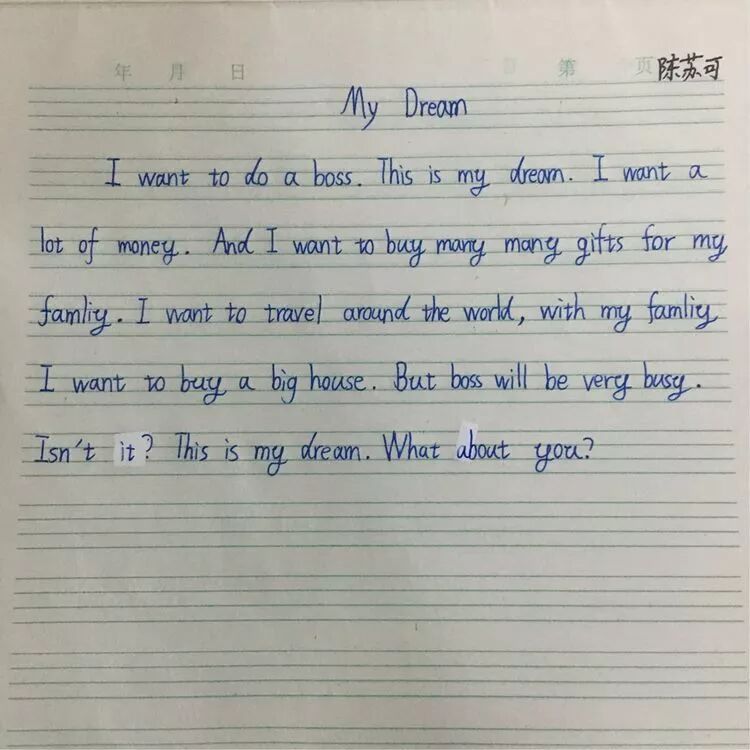 年 月 日 第 页 陈苏可
My Dream
I want to do a boss. This is my dream. I want a
lot of money. And I want to buy many many gifts for my
famliy. I want to travel around the world, with my famliy
I want to buy a big house. But boss will be very busy.
Isn't it? This is my dream. What about you?